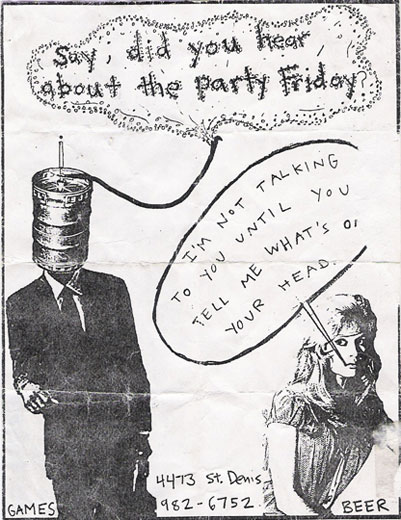 Say, did you hear
about the party Friday?
I'M NOT TALKING
TO YOU UNTIL YOU
TELL ME WHAT'S O
YOUR HEAD.
4473 St. Denis
982-6752
GAMES
BEER